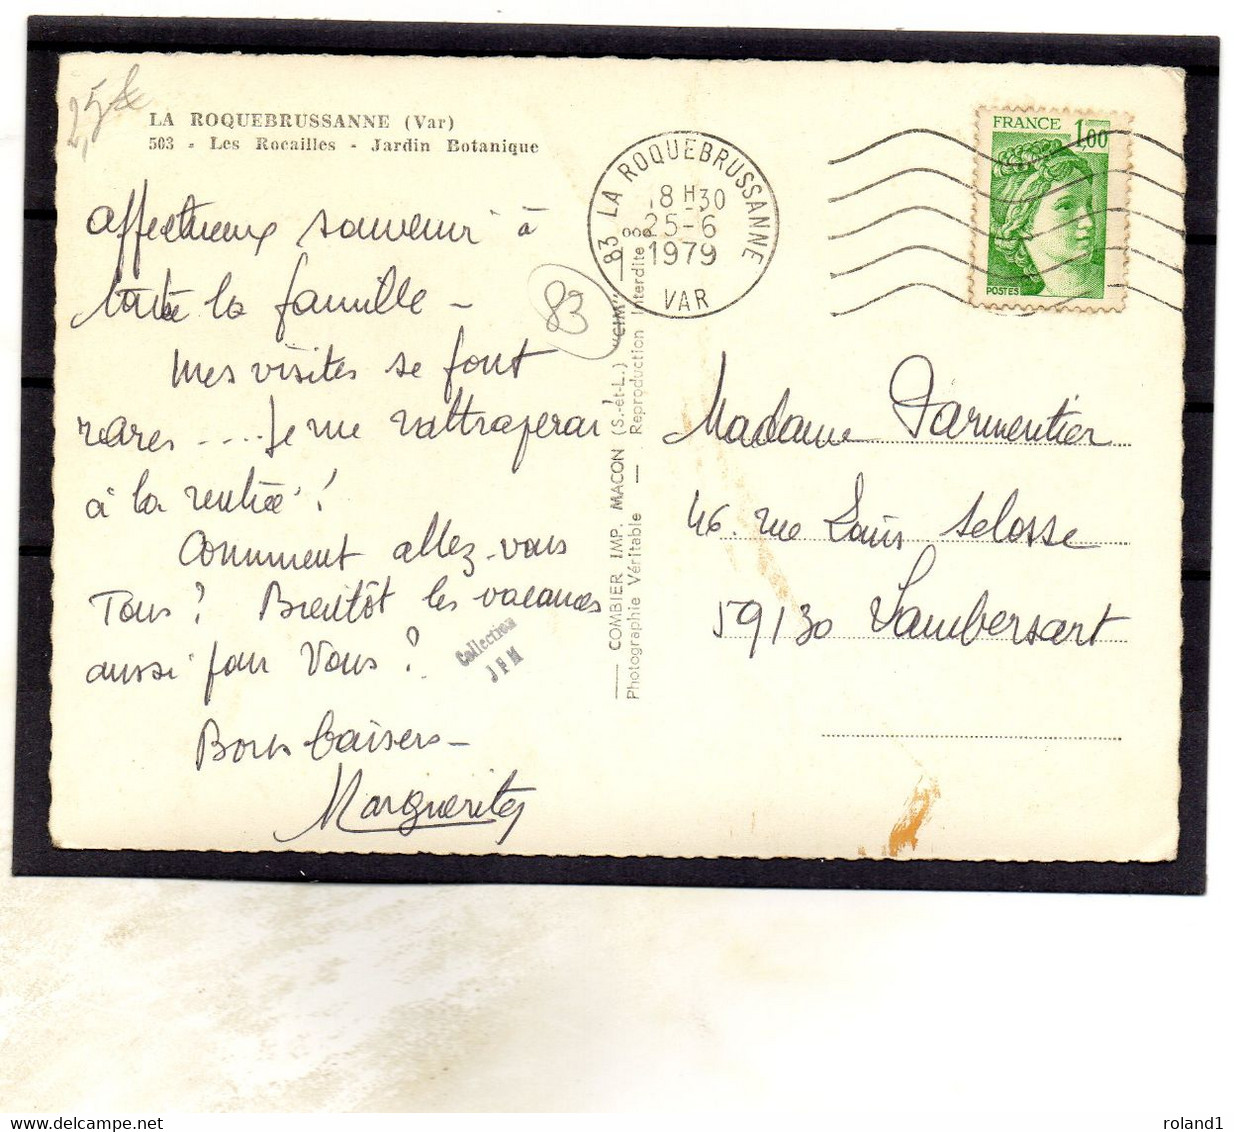 2,5
LA ROQUEBRUSSANNE (Var)
503 - Les Rocailles - Jardin Botanique
Affectueux souvenir à
toute la famille -
Mes visites se font
rares ..... Je me rattraperai
à la rentrée !
Comment allez-vous
Tous ? Bientôt les vacances
aussi pour Vous ?
Bons baisers -
Marguerite
Collection
J F M
83
83 LA ROQUEBRUSSANNE
18 H 30
25-6
1979
VAR
FRANCE 1,00
POSTES
COMBIER IMP. MACON (S.-et-L.) "CIM"
Photographie Véritable — Reproduction Interdite
Madame Parmentier
46. rue Louis Selosse
59130 Lambersart
roland1